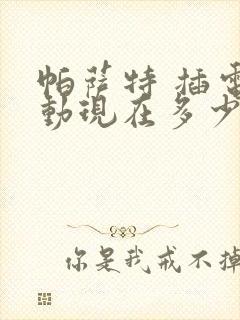 帕萨特 插电
動現在多少
你是我戒不掉